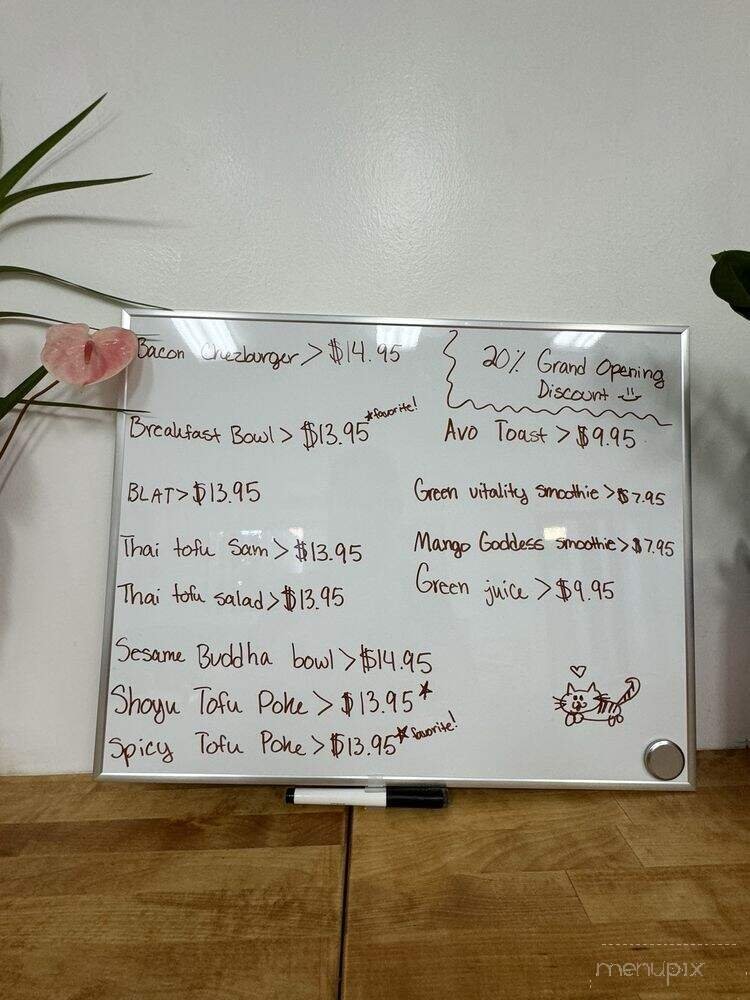 Bacon Chezburger > $14.95
Breakfast Bowl > $13.95 *favorite!
BLAT > $13.95
Thai tofu Sam > $13.95
Thai tofu salad > $13.95
Sesame Buddha bowl > $14.95
Shoyu Tofu Poke > $13.95 *
Spicy Tofu Poke > $13.95 *favorite!
20% Grand Opening
Discount
Avo Toast > $9.95
Green vitality smoothie > $7.95
Mango Goddess smoothie > $7.95
Green juice > $9.95
menupix